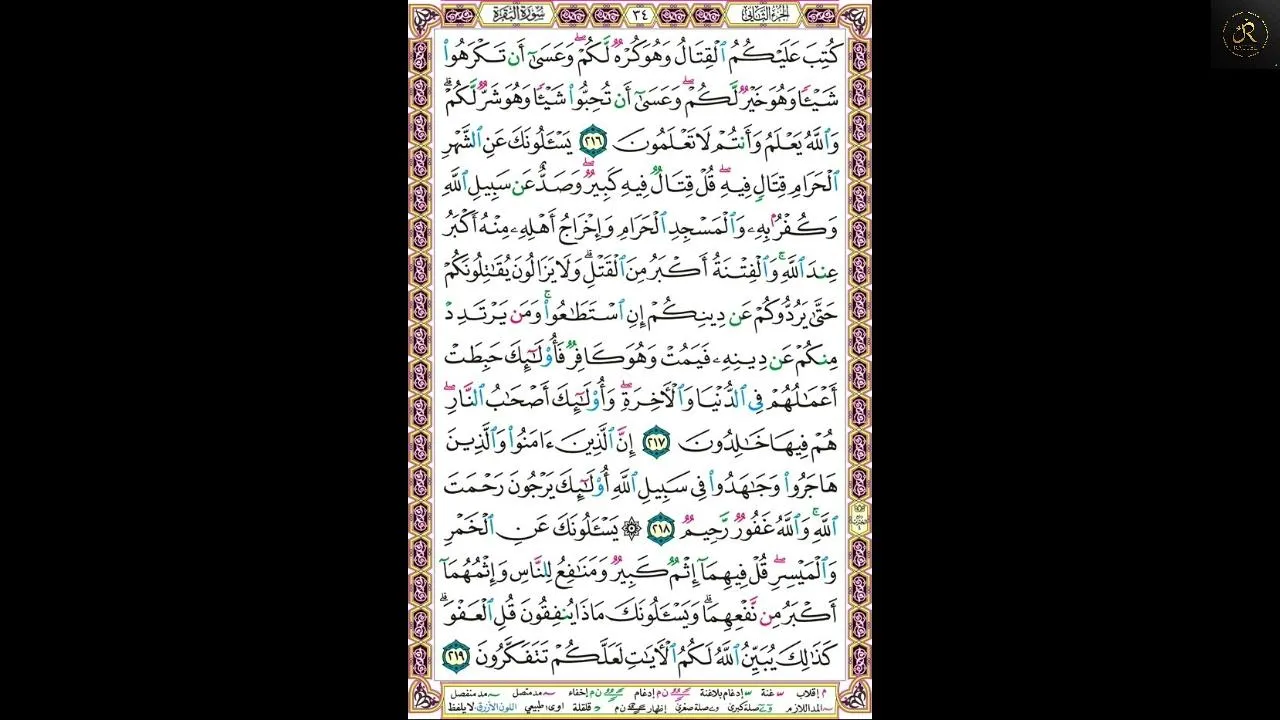 الجزء الثاني ٣٤ سورة البقرة
كُتِبَ عَلَيْكُمُ ٱلْقِتَالُ وَهُوَ كُرْهٌ لَّكُمْ ۖ وَعَسَىٰٓ أَن تَكْرَهُوا۟
شَيْـًٔا وَهُوَ خَيْرٌ لَّكُمْ ۖ وَعَسَىٰٓ أَن تُحِبُّوا۟ شَيْـًٔا وَهُوَ شَرٌّ لَّكُمْ ۗ
وَٱللَّهُ يَعْلَمُ وَأَنتُمْ لَا تَعْلَمُونَ ٢١٦ يَسْـَٔلُونَكَ عَنِ ٱلشَّهْرِ
ٱلْحَرَامِ قِتَالٍ فِيهِ ۖ قُلْ قِتَالٌ فِيهِ كَبِيرٌ ۖ وَصَدٌّ عَن سَبِيلِ ٱللَّهِ
وَكُفْرٌۢ بِهِۦ وَٱلْمَسْجِدِ ٱلْحَرَامِ وَإِخْرَاجُ أَهْلِهِۦ مِنْهُ أَكْبَرُ
عِندَ ٱللَّهِ ۚ وَٱلْفِتْنَةُ أَكْبَرُ مِنَ ٱلْقَتْلِ ۗ وَلَا يَزَالُونَ يُقَـٰتِلُونَكُمْ
حَتَّىٰ يَرُدُّوكُمْ عَن دِينِكُمْ إِنِ ٱسْتَطَـٰعُوا۟ ۚ وَمَن يَرْتَدِدْ
مِنكُمْ عَن دِينِهِۦ فَيَمُتْ وَهُوَ كَافِرٌ فَأُو۟لَـٰٓئِكَ حَبِطَتْ
أَعْمَـٰلُهُمْ فِى ٱلدُّنْيَا وَٱلْـَٔاخِرَةِ ۖ وَأُو۟لَـٰٓئِكَ أَصْحَـٰبُ ٱلنَّارِ ۖ
هُمْ فِيهَا خَـٰلِدُونَ ٢١٧ إِنَّ ٱلَّذِينَ ءَامَنُوا۟ وَٱلَّذِينَ
هَاجَرُوا۟ وَجَـٰهَدُوا۟ فِى سَبِيلِ ٱللَّهِ أُو۟لَـٰٓئِكَ يَرْجُونَ رَحْمَتَ
ٱللَّهِ ۚ وَٱللَّهُ غَفُورٌ رَّحِيمٌ ٢١٨ ۞ يَسْـَٔلُونَكَ عَنِ ٱلْخَمْرِ
وَٱلْمَيْسِرِ ۖ قُلْ فِيهِمَآ إِثْمٌ كَبِيرٌ وَمَنَـٰفِعُ لِلنَّاسِ وَإِثْمُهُمَآ
أَكْبَرُ مِن نَّفْعِهِمَا ۗ وَيَسْـَٔلُونَكَ مَاذَا يُنفِقُونَ قُلِ ٱلْعَفْوَ ۗ
كَذَٰلِكَ يُبَيِّنُ ٱللَّهُ لَكُمُ ٱلْـَٔايَـٰتِ لَعَلَّكُمْ تَتَفَكَّرُونَ ٢١٩
م إقلاب غنة إدغام بلاغنة ن م إدغام ن م إخفاء مد متصل مد منفصل
المد اللازم صلة كبرى صلة صغرى إظهار ن م قلقلة اوى طبيعي اللون الأزرق لا يلفظ